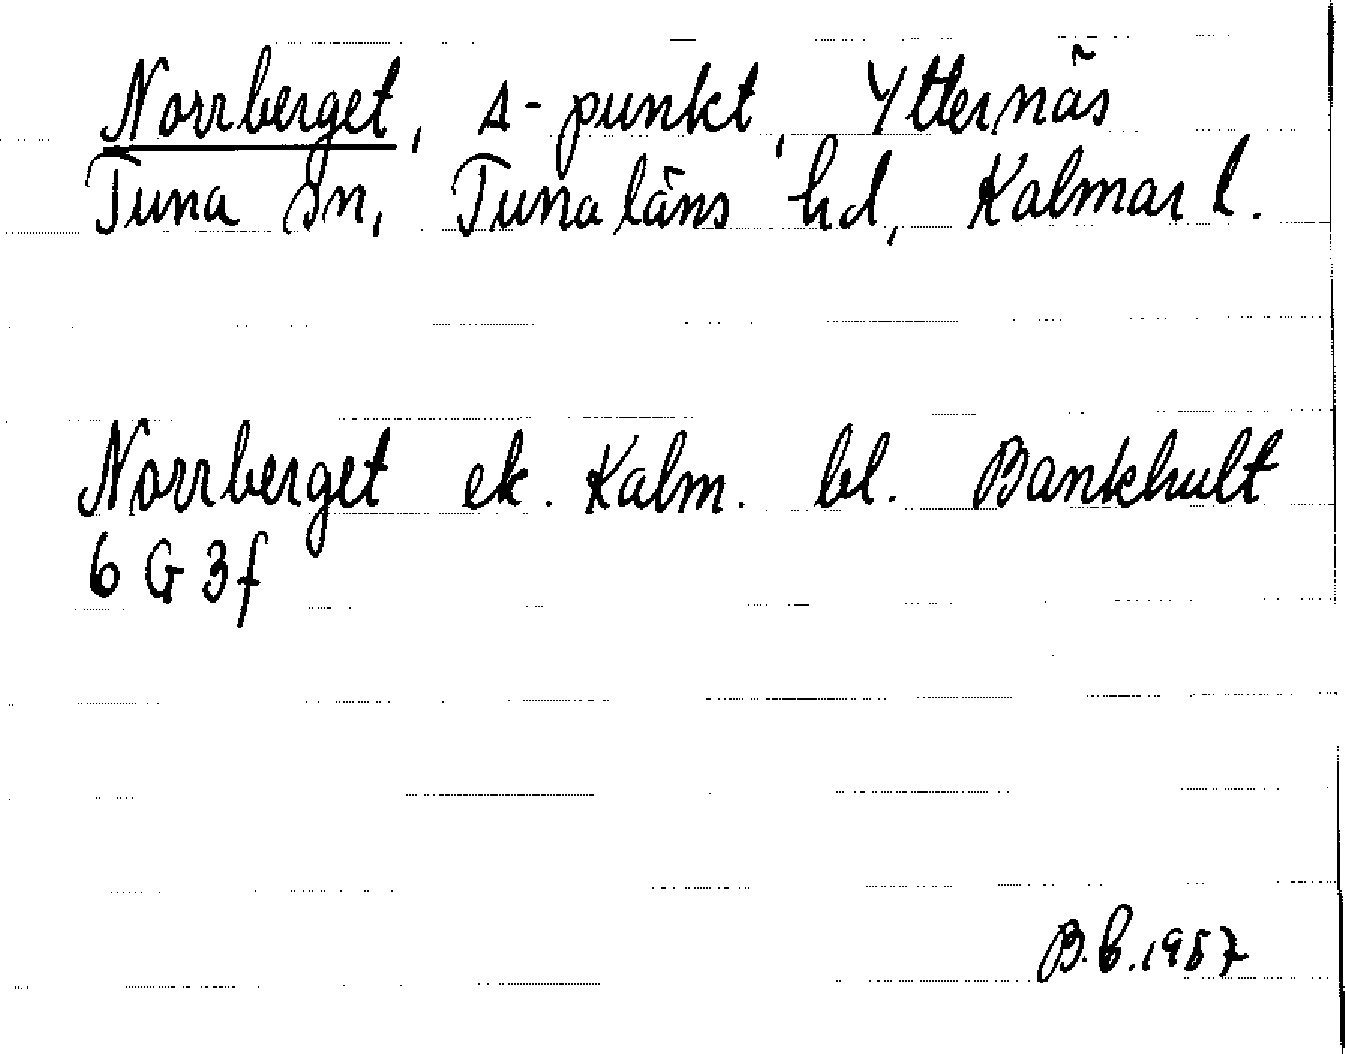 Norrberget, Δ-punkt, Ytternäs
Tuna sn, Tunaläns hd, Kalmar l.
Norrberget ek. Kalm. bl. Bankhult
6 G 3f
B.b.1957